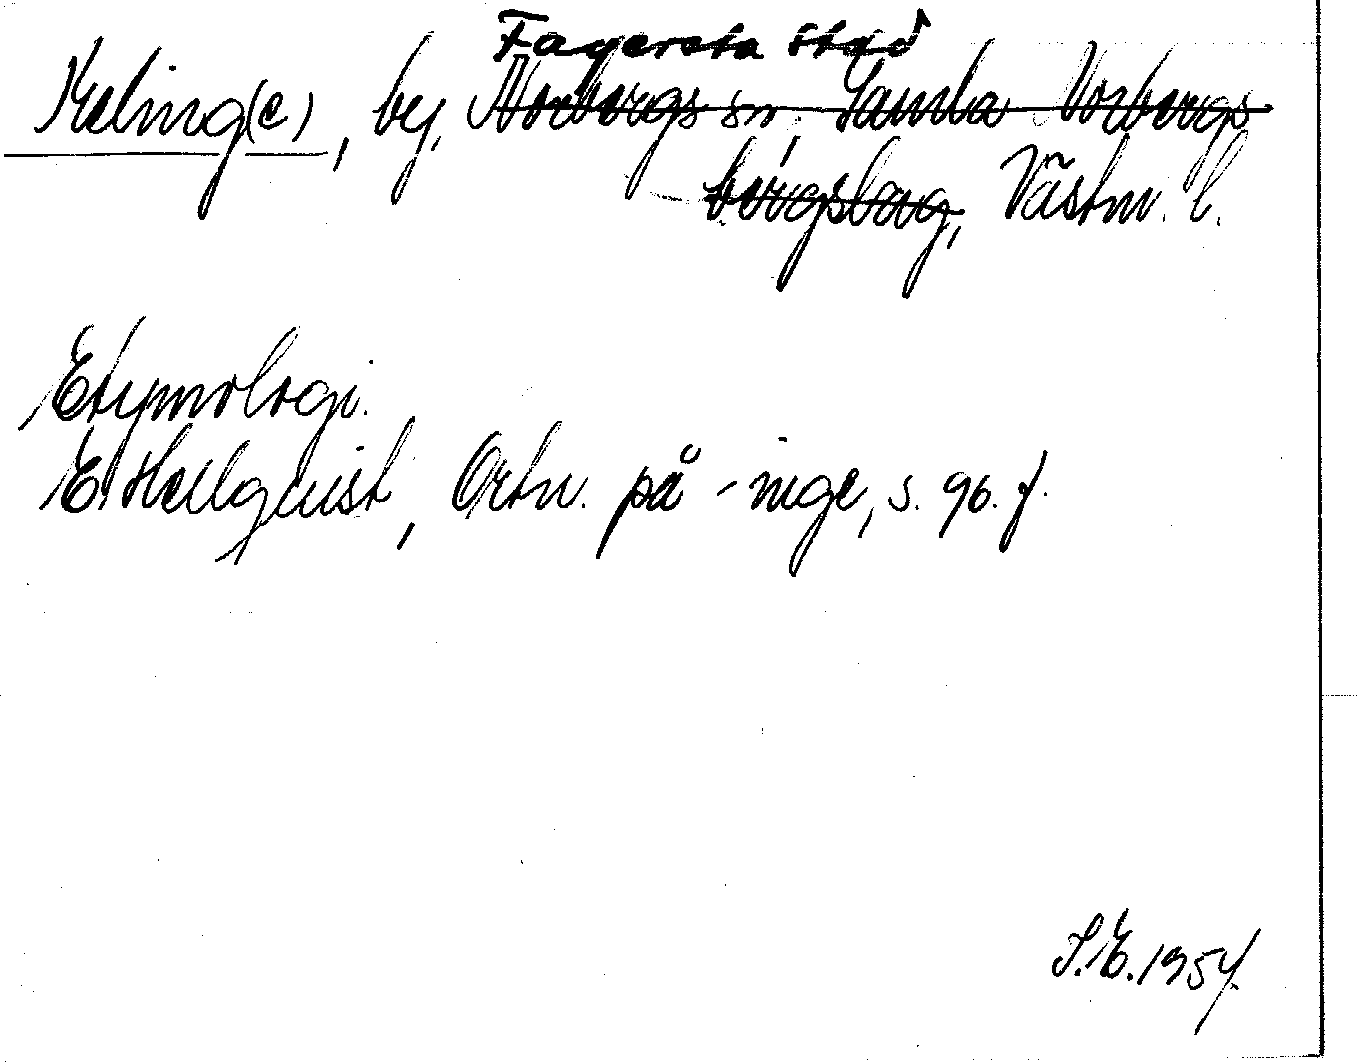 Fagersta stad
Keling(e), by, Norbergs sn, Gamla Norbergs
bergslag, Västm. l.
Etymologi.
E. Hellquist, Ortn. på -inge, s. 96. f.
S.E. 1954.